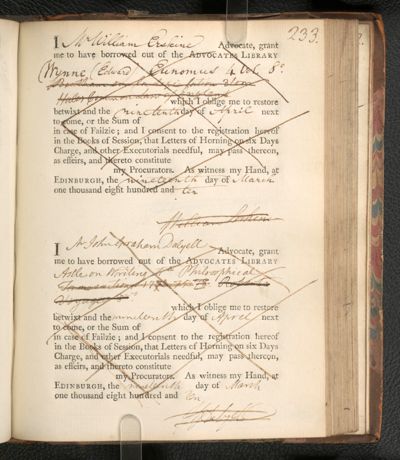 233.
I Mr William Erskine Advocate, grant
me to have borrowed out of the ADVOCATES LIBRARY
Wynne (Edward) Eunomus 4 vols 8o.
which I oblige me to restore
betwixt and the nineteenth day of April next
to come, or the Sum of
in case of Failzie; and I consent to the registration hereof
in the Books of Session, that Letters of Horning on six Days
Charge, and other Executorials needful, may pass thereon,
as effeirs, and thereto constitute
my Procurators. As witness my Hand, at
EDINBURGH, the nineteenth day of March
one thousand eight hundred and ten
William Erskine
I Mr John Graham Dalyell Advocate, grant
me to have borrowed out of the ADVOCATES LIBRARY
Astle on Writing Philosophical
Voyages
which I oblige me to restore
betwixt and the nineteenth day of April next
to come, or the Sum of
in case of Failzie; and I consent to the registration hereof
in the Books of Session, that Letters of Horning on six Days
Charge, and other Executorials needful, may pass thereon,
as effeirs, and thereto constitute
my Procurators. As witness my Hand, at
EDINBURGH, the nineteenth day of March
one thousand eight hundred and ten